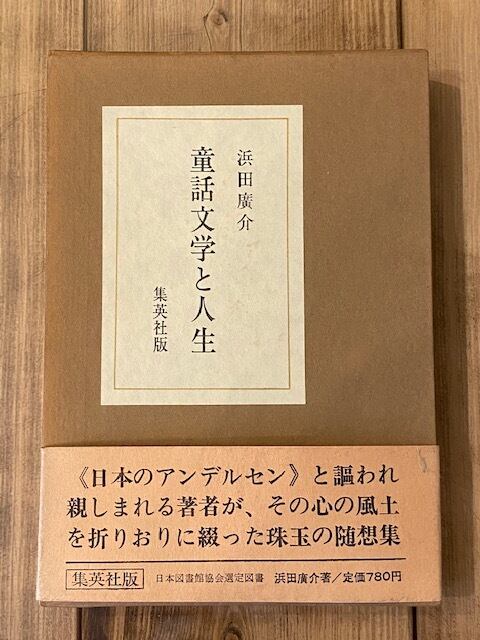 浜田廣介
童話文学と人生
集英社版
《日本のアンデルセン》と謳われ
親しまれる著者が、その心の風土
を折りおりに綴った珠玉の随想集
集英社版 日本図書館協会選定図書 浜田廣介著/定価780円